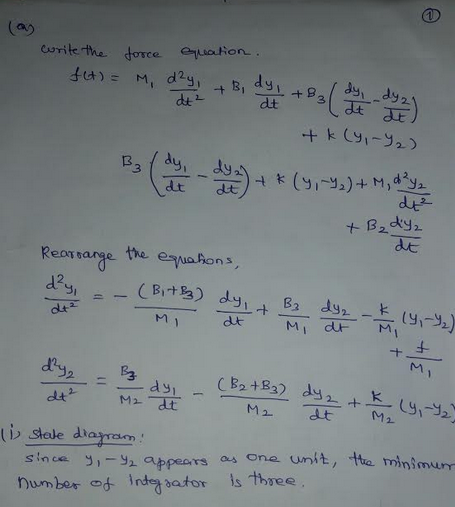 ①
(a)
Write the force equation.
f(t) = M₁ d²y₁/dt² + B₁ dy₁/dt + B₃ (dy₁/dt - dy₂/dt)
+ k (y₁-y₂)
B₃ (dy₁/dt - dy₂/dt) + k (y₁-y₂) + M, d²y₂/dt²
+ B₂ dy₂/dt
Rearrange the equations,
d²y₁/dt² = - (B₁+B₃)/M₁ dy₁/dt + B₃/M₁ dy₂/dt - k/M₁ (y₁-y₂)
+ f/M₁
d²y₂/dt² = B₃/M₂ dy₁/dt - (B₂+B₃)/M₂ dy₂/dt + k/M₂ (y₁-y₂)
(i) state diagram:
since y₁-y₂ appears as one unit, the minimum
number of integrator is three.